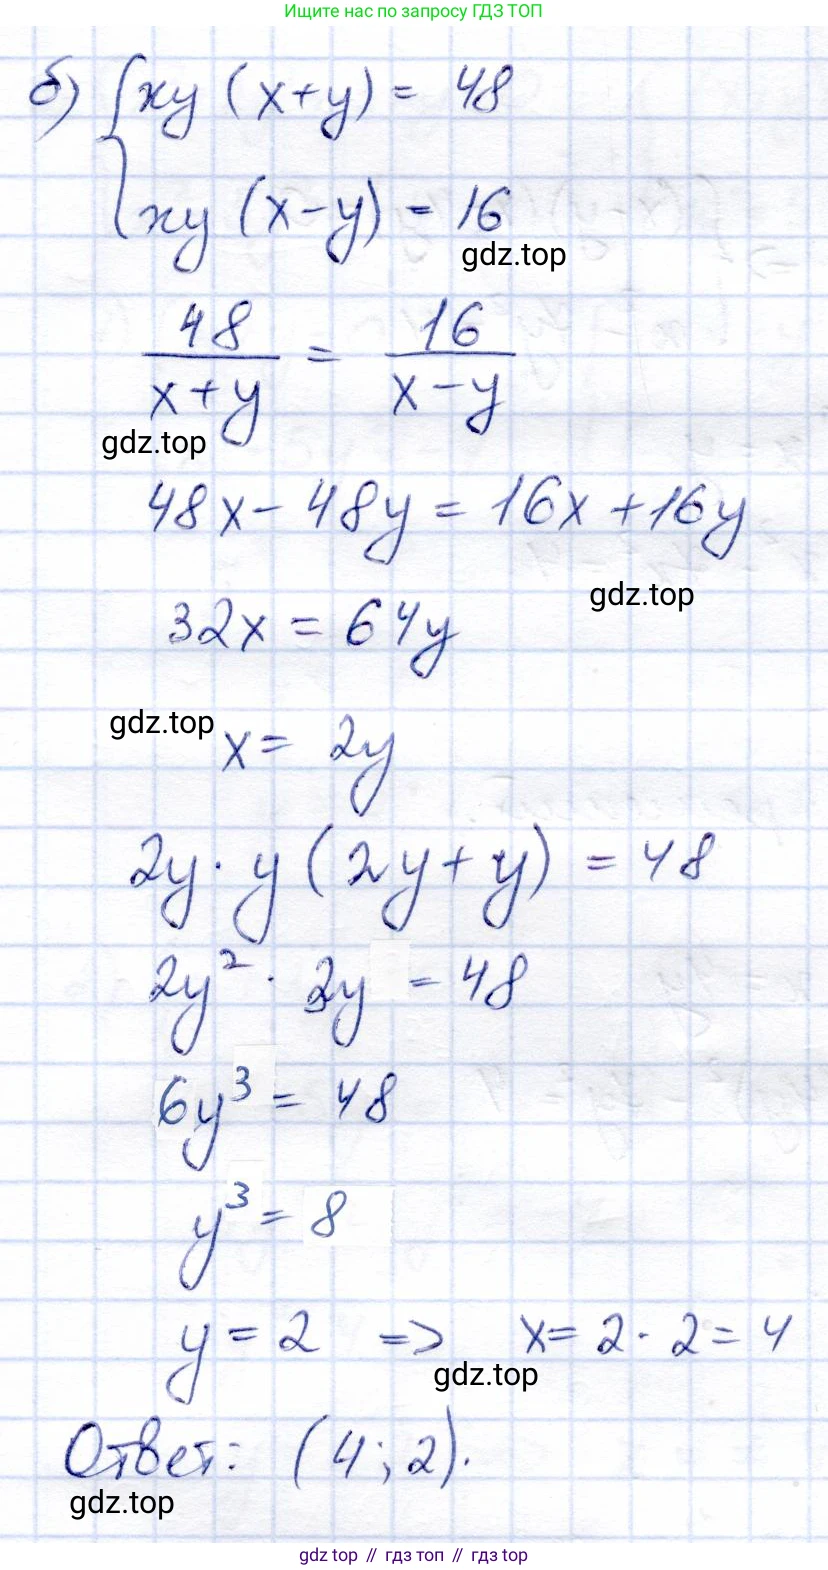 Ищите нас по запросу ГДЗ ТОП
б) { xy (x+y) = 48
xy (x-y) = 16
gdz.top
48/(x+y) = 16/(x-y)
gdz.top
48x - 48y = 16x + 16y
gdz.top
32x = 64y
gdz.top
x = 2y
2y · y (2y + y) = 48
2y² · 3y = 48
6y³ = 48
y³ = 8
y = 2 => x = 2 · 2 = 4
gdz.top
Ответ: (4; 2).
gdz.top
gdz top // гдз топ // гдз top